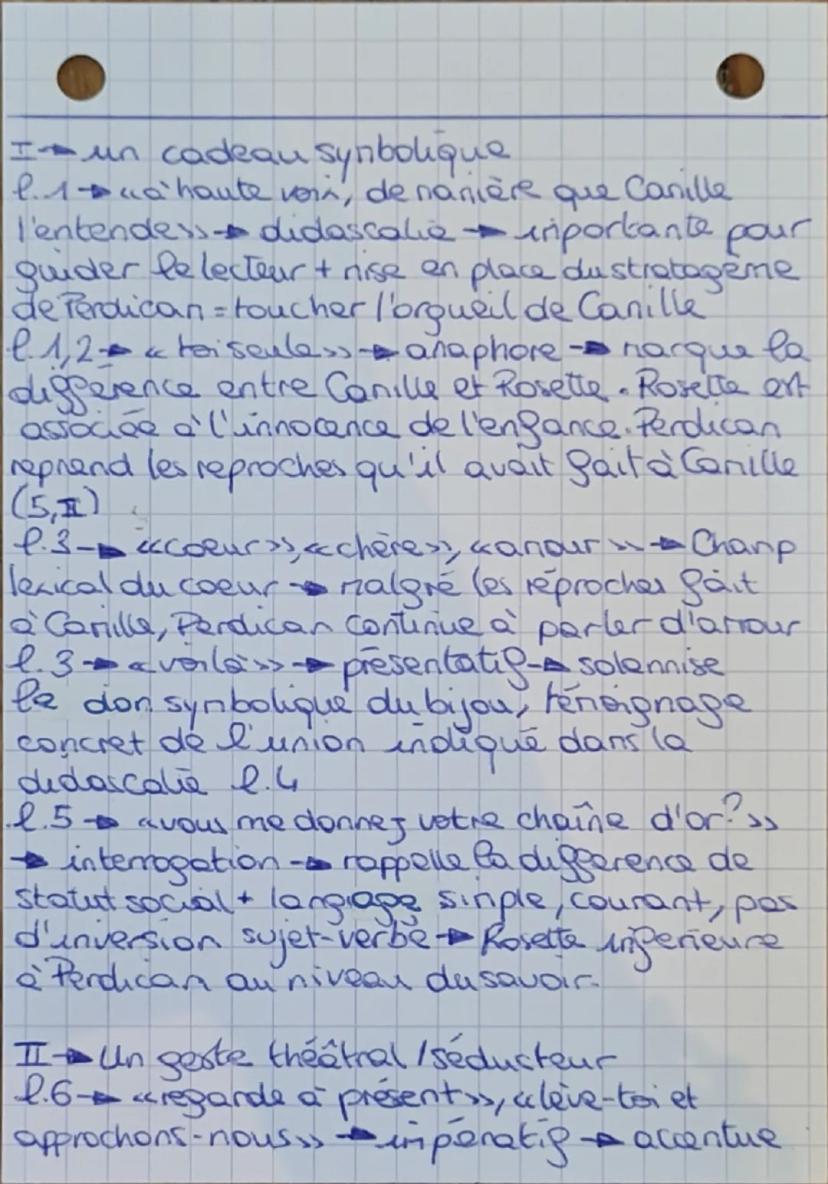 I → un cadeau symbolique
l.1 → «à haute voix, de manière que Camille
l'entende» → didascalie → importante pour
guider le lecteur + mise en place du stratagème
de Perdican = toucher l'orgueil de Camille
l.1,2 → «toi seule» → anaphore → marque la
différence entre Camille et Rosette. Rosette est
associée à l'innocence de l'enfance. Perdican
reprend les reproches qu'il avait fait à Camille
(5,II)
l.3 → «coeur», «chère», «amour» → Champ
lexical du coeur → malgré les réproches fait
à Camille, Perdican continue à parler d'amour
l.3 → «voilà» → présentatif → solennise
le don symbolique du bijou, témoignage
concret de l'union indiqué dans la
didascalie l.4
l.5 → «vous me donnez votre chaîne d'or?»
→ interrogation → rappelle la différence de
statut social + langage simple, courant, pas
d'inversion sujet-verbe → Rosette inférieure
à Perdican au niveau du savoir.
II → Un geste théâtral / séducteur
l.6 → «regarde à présent», «lève-toi et
approchons-nous» → impératif → accentue